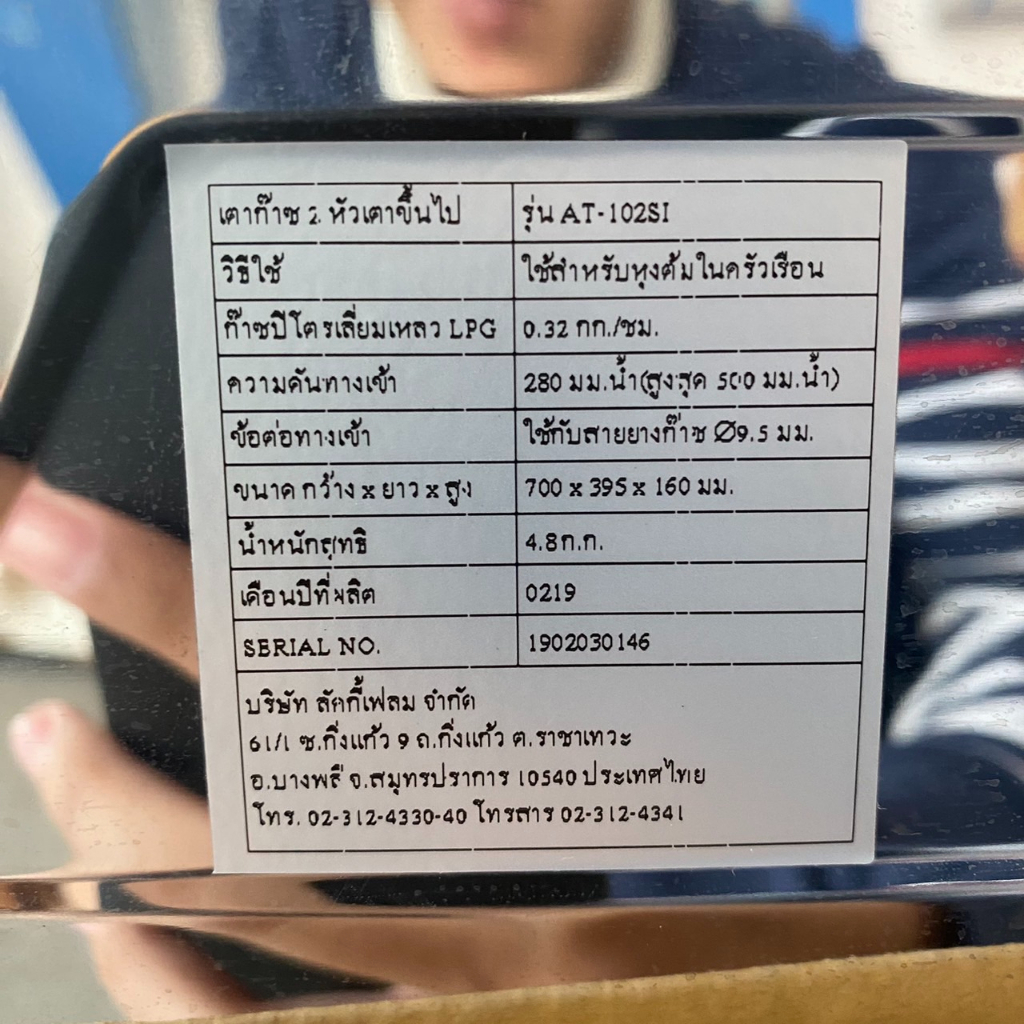 เตาก๊าซ 2 หัวเตาขึ้นไป รุ่น AT-102SI
วิธีใช้ ใช้สำหรับหุงต้มในครัวเรือน
ก๊าซปิโตรเลี่ยมเหลว LPG 0.32 กก./ชม.
ความดันทางเข้า 280 มม.น้ำ(สูงสุด 500 มม.น้ำ)
ข้อต่อทางเข้า ใช้กับสายยางก๊าซ Ø9.5 มม.
ขนาด กว้าง x ยาว x สูง 700 x 395 x 160 มม.
น้ำหนักสุทธิ 4.8ก.ก.
เดือนปีที่ผลิต 0219
SERIAL NO. 1902030146
บริษัท ลัคกี้เฟลม จำกัด
61/1 ซ.กิ่งแก้ว 9 ถ.กิ่งแก้ว ต.ราชาเทวะ
อ.บางพลี จ.สมุทรปราการ 10540 ประเทศไทย
โทร. 02-312-4330-40 โทรสาร 02-312-4341